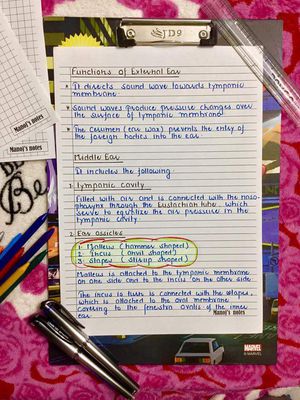 JD9
Manoj's notes
Functions of External Ear
It directs sound wave towards tympanic
membrane
Sound waves produce pressure changes over
the surface of tympanic membrane
The Cerumen (ear wax) prevents the entry of
the foreign bodies into the ear.
Middle Ear
It includes the following
1. Tympanic cavity
Filled with air and is connected with the naso-
pharynx through the Eustachian tube, which
serve to equalize the air pressure in the
tympanic cavity.
2. Ear ossicles
1. Malleus (hammer shaped)
2. Incus (anvil shaped)
3. Stapes (stirrup shaped)
Malleus is attached to the tympanic membrane
on one side and to the incus on the other side.
The incus in turn is connected with the stapes,
which is attached to the oval membrane
covering to the fenestra ovalis of the inner
ear.
Manoj's notes
MARVEL
© MARVEL
Be